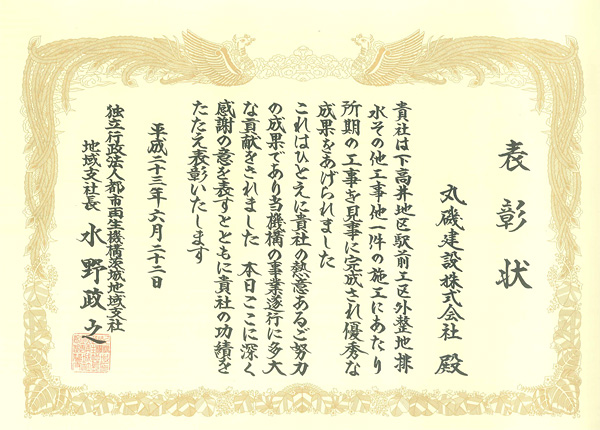 表彰状
丸磯建設株式会社 殿
貴社は下高井地区駅前工区外整地排
水その他工事他一件の施工にあたり
所期の工事を見事に完成され優秀な
成果をあげられました
これはひとえに貴社の熱意あるご努力
の成果であり当機構の事業遂行に多大
な貢献をされました 本日ここに深く
感謝の意を表すとともに貴社の功績を
たたえ表彰いたします
平成二十三年六月二十二日
独立行政法人都市再生機構茨城地域支社
地域支社長 水野政之